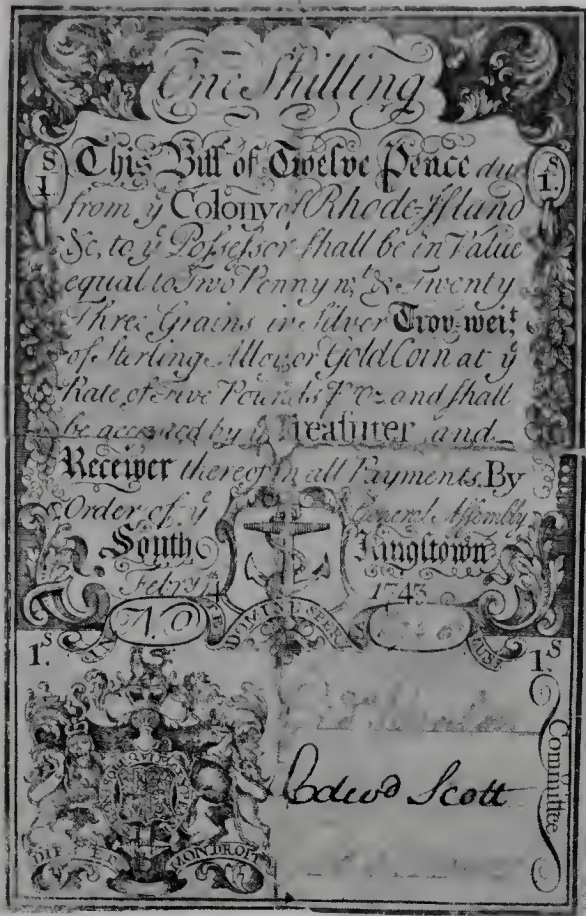 One Shilling
S
1
This Bill of Twelve Pence du
S
1.
from yͤ Colony of Rhode-Island
&c, to yͤ Possessor shall be in Value
equal to Two Penny wͭ & Twenty
Three Grains in Silver Troy-weiͭ,
of Sterling Alloy or Gold Coin at yͤ
Rate of Five Pounds ꝑ Oz and shall
be accepted by yͤ Treasurer and
Receiver thereof in all Payments. By
Order of yͤ General Assembly
South Kingstown
Febry 1743
No
IN TE DOMINE SPERA MUS
1.S
1.S
HONI SOIT QUI MAL Y PENSE
Edwd Scott
Committee
DIE ET MON DROIT